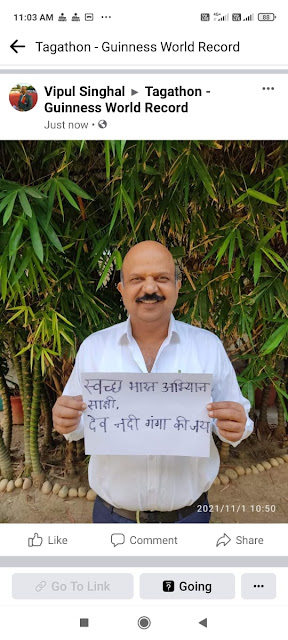 11:03 AM
88
Tagathon - Guinness World Record
Vipul Singhal ▸ Tagathon -
Guinness World Record
Just now •
स्वच्छ भारत अभियान
साक्षी,
देव नदी गंगा की जय
2021/11/1 10:50
Like Comment Share
Go To Link Going